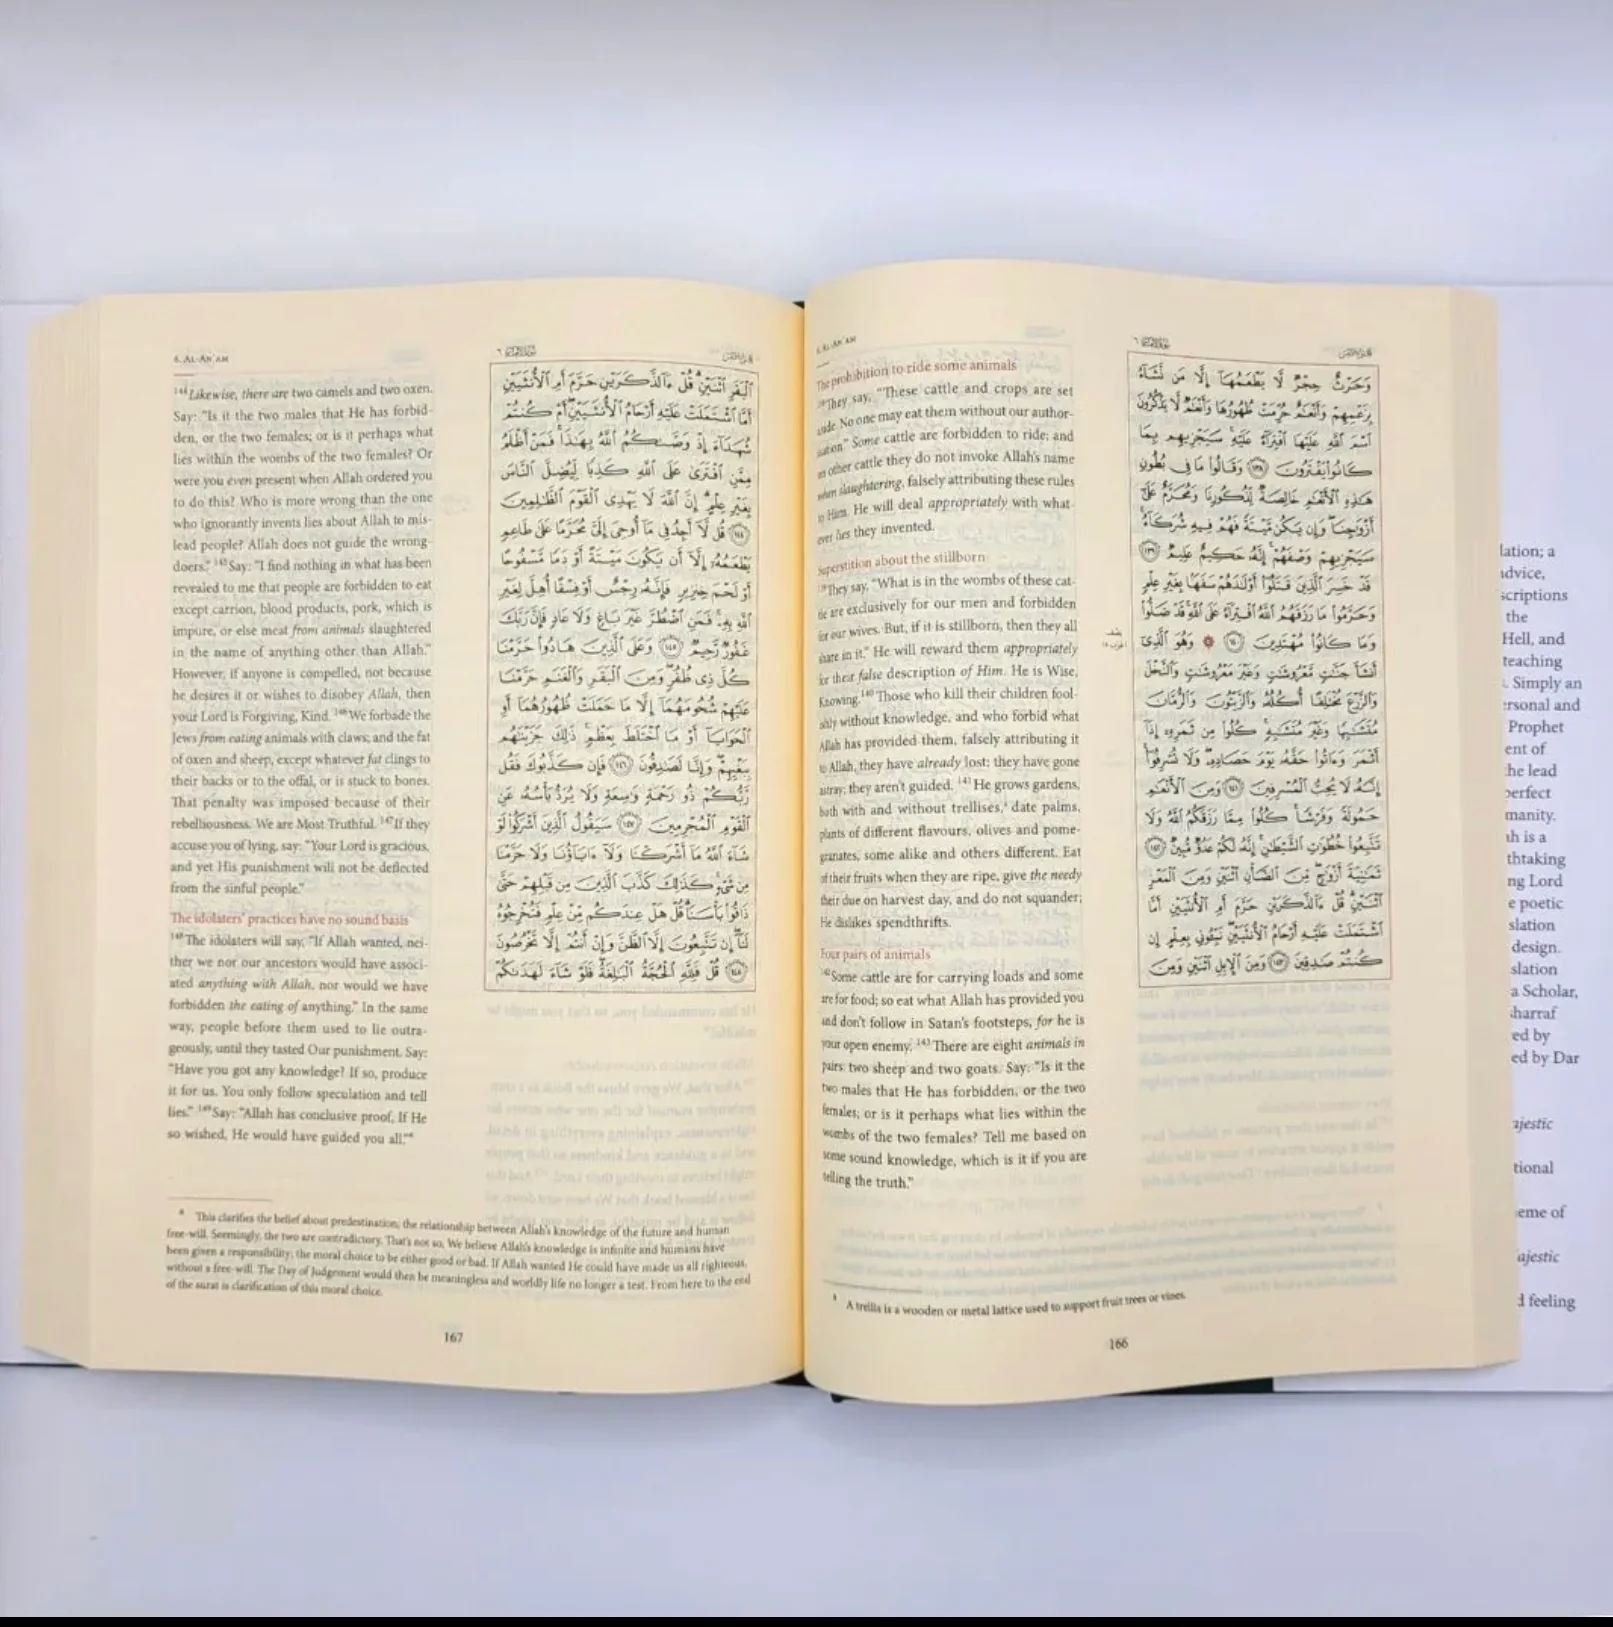 6. AL-AN'AM
The prohibition to ride some animals
They say, "These cattle and crops are set
No one may eat them without our author-
Some cattle are forbidden to ride; and
on other cattle they do not invoke Allah's name
when slaughtering, falsely attributing these rules
to Him. He will deal appropriately with what-
ever lies they invented.
Superstition about the stillborn
They say, "What is in the wombs of these cat-
tle are exclusively for our men and forbidden
for our wives. But, if it is stillborn, then they all
share in it." He will reward them appropriately
for their false description of Him. He is Wise,
Knowing. 140 Those who kill their children fool-
ishly without knowledge, and who forbid what
Allah has provided them, falsely attributing it
to Allah, they have already lost; they have gone
astray; they aren't guided. 141 He grows gardens,
both with and without trellises, date palms,
plants of different flavours, olives and pome-
granates, some alike and others different. Eat
of their fruits when they are ripe, give the needy
their due on harvest day, and do not squander;
He dislikes spendthrifts.
Four pairs of animals
142 Some cattle are for carrying loads and some
are for food; so eat what Allah has provided you
and don't follow in Satan's footsteps, for he is
your open enemy. 143 There are eight animals in
pairs: two sheep and two goats. Say: "Is it the
two males that He has forbidden, or the two
females; or is it perhaps what lies within the
wombs of the two females? Tell me based on
some sound knowledge, which is it if you are
telling the truth."
وَحَرْثٌ حِجْرٌ لَّا يَطْعَمُهَآ إِلَّا مَن نَّشَآءُ
بِزَعْمِهِمْ وَأَنْعَٰمٌ حُرِّمَتْ ظُهُورُهَا وَأَنْعَٰمٌ لَّا يَذْكُرُونَ
ٱسْمَ ٱللَّهِ عَلَيْهَا ٱفْتِرَآءً عَلَيْهِ ۚ سَيَجْزِيهِم بِمَا
كَانُوا۟ يَفْتَرُونَ ١٣٨ وَقَالُوا۟ مَا فِى بُطُونِ
هَٰذِهِ ٱلْأَنْعَٰمِ خَالِصَةٌ لِّذُكُورِنَا وَمُحَرَّمٌ عَلَىٰٓ
أَزْوَٰجِنَا ۖ وَإِن يَكُن مَّيْتَةً فَهُمْ فِيهِ شُرَكَآءُ ۚ
سَيَجْزِيهِمْ وَصْفَهُمْ ۚ إِنَّهُۥ حَكِيمٌ عَلِيمٌ ١٣٩
قَدْ خَسِرَ ٱلَّذِينَ قَتَلُوٓا۟ أَوْلَٰدَهُمْ سَفَهًۢا بِغَيْرِ عِلْمٍ
وَحَرَّمُوا۟ مَا رَزَقَهُمُ ٱللَّهُ ٱفْتِرَآءً عَلَى ٱللَّهِ ۚ قَدْ ضَلُّوا۟
وَمَا كَانُوا۟ مُهْتَدِينَ ١٤٠ ۞ وَهُوَ ٱلَّذِىٓ
أَنشَأَ جَنَّٰتٍ مَّعْرُوشَٰتٍ وَغَيْرَ مَعْرُوشَٰتٍ وَٱلنَّخْلَ
وَٱلزَّرْعَ مُخْتَلِفًا أُكُلُهُۥ وَٱلزَّيْتُونَ وَٱلرُّمَّانَ
مُتَشَٰبِهًا وَغَيْرَ مُتَشَٰبِهٍ ۚ كُلُوا۟ مِن ثَمَرِهِۦٓ إِذَآ
أَثْمَرَ وَءَاتُوا۟ حَقَّهُۥ يَوْمَ حَصَادِهِۦ ۖ وَلَا تُسْرِفُوٓا۟ ۚ
إِنَّهُۥ لَا يُحِبُّ ٱلْمُسْرِفِينَ ١٤١ وَمِنَ ٱلْأَنْعَٰمِ
حَمُولَةً وَفَرْشًا ۚ كُلُوا۟ مِمَّا رَزَقَكُمُ ٱللَّهُ وَلَا
تَتَّبِعُوا۟ خُطُوَٰتِ ٱلشَّيْطَٰنِ ۚ إِنَّهُۥ لَكُمْ عَدُوٌّ مُّبِينٌ ١٤٢
ثَمَٰنِيَةَ أَزْوَٰجٍ ۖ مِّنَ ٱلضَّأْنِ ٱثْنَيْنِ وَمِنَ ٱلْمَعْزِ
ٱثْنَيْنِ ۗ قُلْ ءَآلذَّكَرَيْنِ حَرَّمَ أَمِ ٱلْأُنثَيَيْنِ أَمَّا
ٱشْتَمَلَتْ عَلَيْهِ أَرْحَامُ ٱلْأُنثَيَيْنِ ۖ نَبِّـُٔونِى بِعِلْمٍ إِن
كُنتُمْ صَٰدِقِينَ ١٤٣ وَمِنَ ٱلْإِبِلِ ٱثْنَيْنِ وَمِنَ
A trellis is a wooden or metal lattice used to support fruit trees or vines.
166
6. AL-AN'AM
144 Likewise, there are two camels and two oxen.
Say: "Is it the two males that He has forbid-
den, or the two females; or is it perhaps what
lies within the wombs of the two females? Or
were you even present when Allah ordered you
to do this? Who is more wrong than the one
who ignorantly invents lies about Allah to mis-
lead people? Allah does not guide the wrong-
doers." 145 Say: "I find nothing in what has been
revealed to me that people are forbidden to eat
except carrion, blood products, pork, which is
impure, or else meat from animals slaughtered
in the name of anything other than Allah."
However, if anyone is compelled, not because
he desires it or wishes to disobey Allah, then
your Lord is Forgiving, Kind. 146 We forbade the
Jews from eating animals with claws; and the fat
of oxen and sheep, except whatever fat clings to
their backs or to the offal, or is stuck to bones.
That penalty was imposed because of their
rebelliousness. We are Most Truthful. 147 If they
accuse you of lying, say: "Your Lord is gracious,
and yet His punishment will not be deflected
from the sinful people."
The idolaters' practices have no sound basis
148 The idolaters will say, "If Allah wanted, nei-
ther we nor our ancestors would have associ-
ated anything with Allah, nor would we have
forbidden the eating of anything." In the same
way, people before them used to lie outra-
geously, until they tasted Our punishment. Say:
"Have you got any knowledge? If so, produce
it for us. You only follow speculation and tell
lies." 149 Say: "Allah has conclusive proof, If He
so wished, He would have guided you all."
ٱلْبَقَرِ ٱثْنَيْنِ ۗ قُلْ ءَآلذَّكَرَيْنِ حَرَّمَ أَمِ ٱلْأُنثَيَيْنِ
أَمَّا ٱشْتَمَلَتْ عَلَيْهِ أَرْحَامُ ٱلْأُنثَيَيْنِ ۖ أَمْ كُنتُمْ
شُهَدَآءَ إِذْ وَصَّىٰكُمُ ٱللَّهُ بِهَٰذَا ۚ فَمَنْ أَظْلَمُ
مِمَّنِ ٱفْتَرَىٰ عَلَى ٱللَّهِ كَذِبًا لِّيُضِلَّ ٱلنَّاسَ
بِغَيْرِ عِلْمٍ ۗ إِنَّ ٱللَّهَ لَا يَهْدِى ٱلْقَوْمَ ٱلظَّٰلِمِينَ
١٤٤ قُل لَّآ أَجِدُ فِى مَآ أُوحِىَ إِلَىَّ مُحَرَّمًا عَلَىٰ طَاعِمٍ
يَطْعَمُهُۥٓ إِلَّآ أَن يَكُونَ مَيْتَةً أَوْ دَمًا مَّسْفُوحًا
أَوْ لَحْمَ خِنزِيرٍ فَإِنَّهُۥ رِجْسٌ أَوْ فِسْقًا أُهِلَّ لِغَيْرِ
ٱللَّهِ بِهِۦ ۚ فَمَنِ ٱضْطُرَّ غَيْرَ بَاغٍ وَلَا عَادٍ فَإِنَّ رَبَّكَ
غَفُورٌ رَّحِيمٌ ١٤٥ وَعَلَى ٱلَّذِينَ هَادُوا۟ حَرَّمْنَا
كُلَّ ذِى ظُفُرٍ ۖ وَمِنَ ٱلْبَقَرِ وَٱلْغَنَمِ حَرَّمْنَا
عَلَيْهِمْ شُحُومَهُمَآ إِلَّا مَا حَمَلَتْ ظُهُورُهُمَآ أَوِ
ٱلْحَوَايَآ أَوْ مَا ٱخْتَلَطَ بِعَظْمٍ ۚ ذَٰلِكَ جَزَيْنَٰهُم
بِبَغْيِهِمْ ۖ وَإِنَّا لَصَٰدِقُونَ ١٤٦ فَإِن كَذَّبُوكَ فَقُل
رَّبُّكُمْ ذُو رَحْمَةٍ وَٰسِعَةٍ وَلَا يُرَدُّ بَأْسُهُۥ عَنِ
ٱلْقَوْمِ ٱلْمُجْرِمِينَ ١٤٧ سَيَقُولُ ٱلَّذِينَ أَشْرَكُوا۟ لَوْ
شَآءَ ٱللَّهُ مَآ أَشْرَكْنَا وَلَآ ءَابَآؤُنَا وَلَا حَرَّمْنَا
مِن شَىْءٍ ۚ كَذَٰلِكَ كَذَّبَ ٱلَّذِينَ مِن قَبْلِهِمْ حَتَّىٰ
ذَاقُوا۟ بَأْسَنَا ۗ قُلْ هَلْ عِندَكُم مِّنْ عِلْمٍ فَتُخْرِجُوهُ
لَنَآ ۖ إِن تَتَّبِعُونَ إِلَّا ٱلظَّنَّ وَإِنْ أَنتُمْ إِلَّا تَخْرُصُونَ
١٤٨ قُلْ فَلِلَّهِ ٱلْحُجَّةُ ٱلْبَٰلِغَةُ ۖ فَلَوْ شَآءَ لَهَدَىٰكُمْ
This clarifies the belief about predestination; the relationship between Allah's knowledge of the future and human
free-will. Seemingly, the two are contradictory. That's not so. We believe Allah's knowledge is infinite and humans have
been given a responsibility; the moral choice to be either good or bad. If Allah wanted He could have made us all righteous,
without a free-will. The Day of Judgement would then be meaningless and worldly life no longer a test. From here to the end
of the surat is clarification of this moral choice.
167
lation; a
advice,
scriptions
the
Hell, and
teaching
Simply an
ersonal and
Prophet
ent of
he lead
perfect
manity.
ah is a
thtaking
ng Lord
e poetic
slation
design.
slation
a Scholar,
sharraf
ed by
ed by Dar
ajestic
tional
eme of
ajestic
d feeling